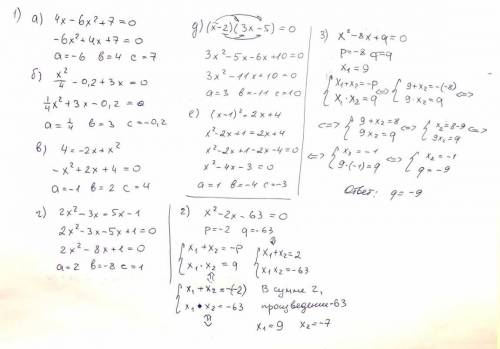 1) а) 4x - 6x² + 7 = 0
-6x² + 4x + 7 = 0
a = -6 в = 4 c = 7
б) x²/4 - 0,2 + 3x = 0
1/4x² + 3x - 0,2 = 0
a = 1/4 в = 3 c = -0,2
в) 4 = -2x + x²
-x² + 2x + 4 = 0
a = -1 в = 2 c = 4
г) 2x² - 3x = 5x - 1
2x² - 3x - 5x + 1 = 0
2x² - 8x + 1 = 0
a = 2 в = -8 c = 1
д) (x - 2)(3x - 5) = 0
3x² - 5x - 6x + 10 = 0
3x² - 11x + 10 = 0
a = 3 в = -11 c = 10
е) (x - 1)² = 2x + 4
x² - 2x + 1 = 2x + 4
x² - 2x + 1 - 2x - 4 = 0
x² - 4x - 3 = 0
a = 1 в = -4 c = -3
2) x² - 2x - 63 = 0
p = -2 q = -63
{ x₁ + x₂ = -p
x₁ · x₂ = q
⇕
{ x₁ + x₂ = -(-2)
x₁ · x₂ = -63
⇕
{ x₁ + x₂ = 2
x₁ x₂ = -63
В сумме 2,
произведении -63
x₁ = 9 x₂ = -7
3) x² - 8x + q = 0
p = -8 q = q
x₁ = 9
{ x₁ + x₂ = -p ⇔ { 9 + x₂ = -(-8) ⇔
x₁ · x₂ = q 9 · x₂ = q
⇔ { 9 + x₂ = 8 ⇔ { x₂ = 8 - 9 ⇔
9x₂ = q 9x₂ = q
⇔ { x₂ = -1 ⇔ { x₂ = -1
9 · (-1) = q q = -9
Ответ: q = -9